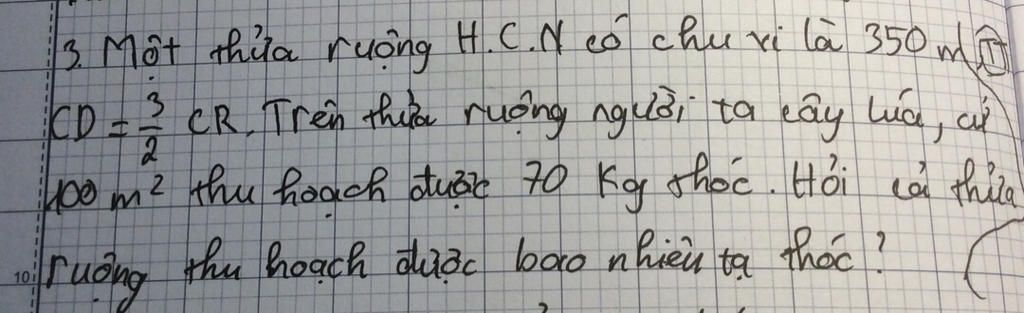 3. Một thửa ruộng H.C.N có chu vi là 350 m
CD = 3/2 CR. Trên thửa ruộng người ta cấy lúa, cứ
100 m² thu hoạch được 70 Kg thóc. Hỏi cả thửa
ruộng thu hoạch được bao nhiêu tạ thóc?
10